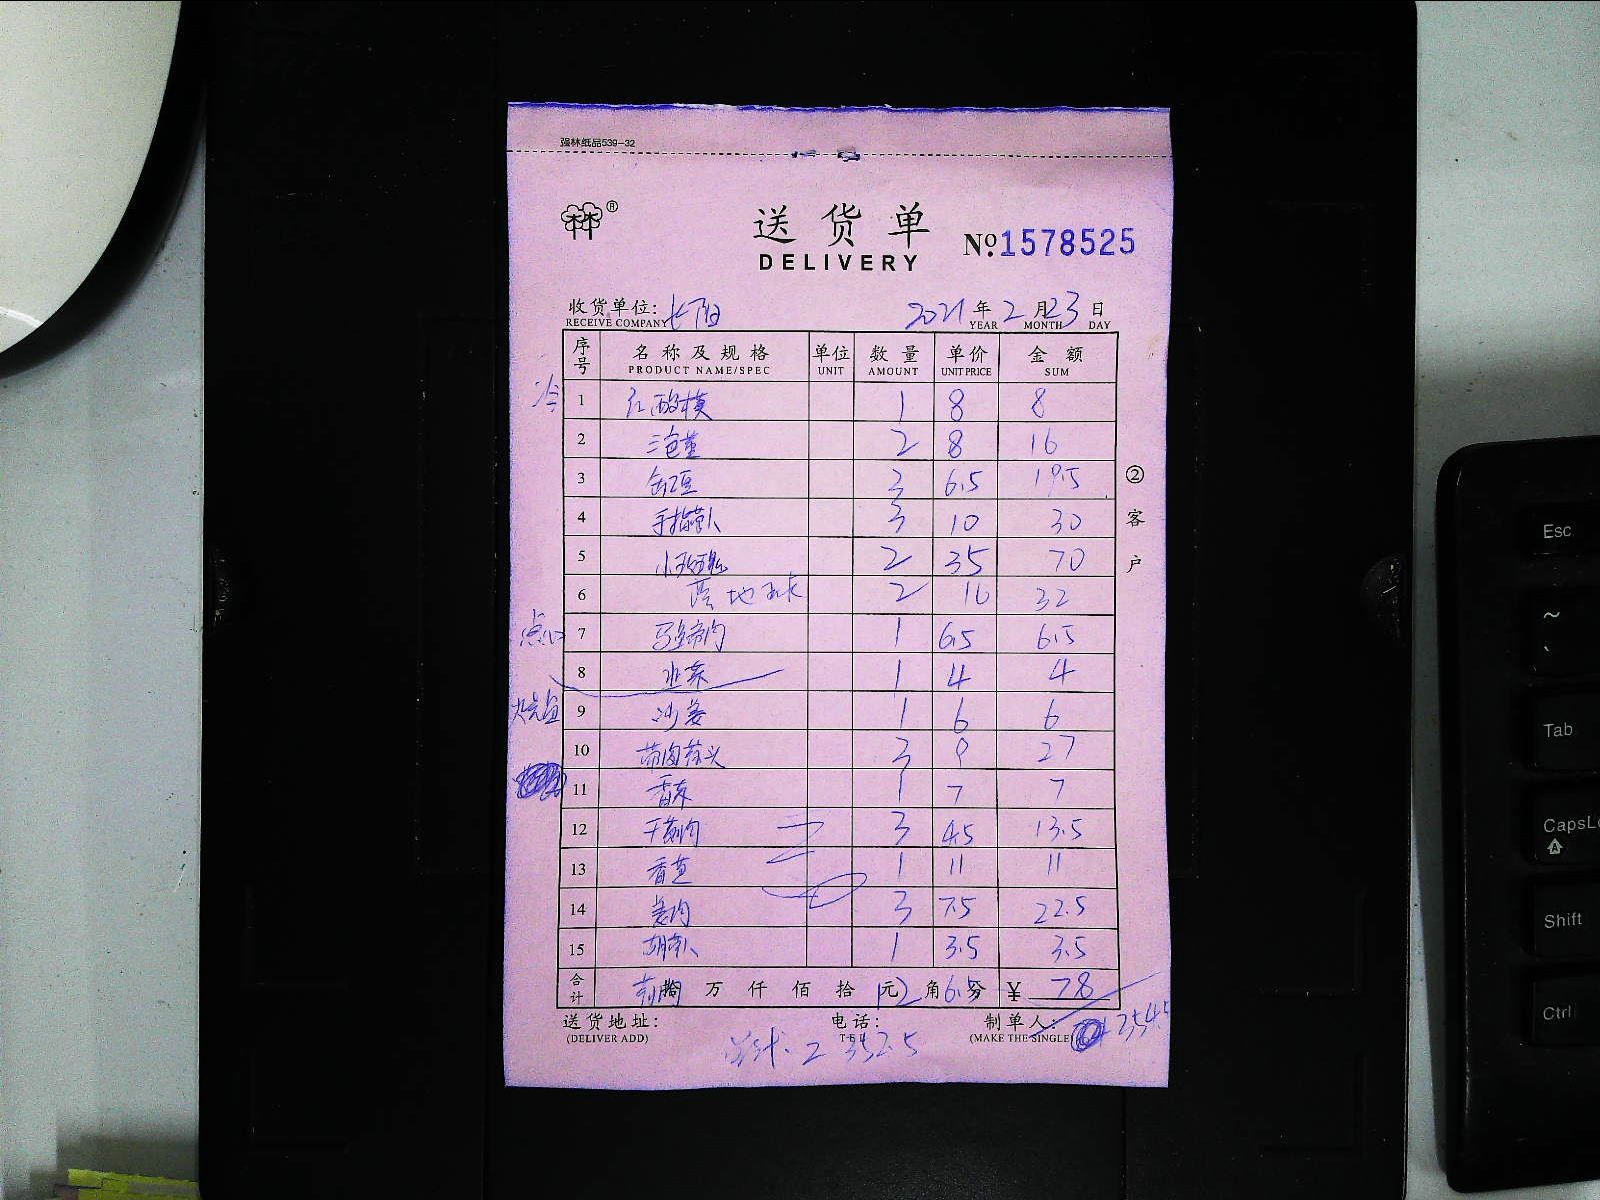 强林纸品539-32
林林®
送货单 №1578525
DELIVERY
收货单位: 长阳 2021年2月23日
RECEIVE COMPANY YEAR MONTH DAY
序号 名称及规格 单位 数量 单价 金额
PRODUCT NAME/SPEC UNIT AMOUNT UNIT PRICE SUM
冷 1 红酸模 1 8 8
2 三色堇 2 8 16
3 缸豆 3 6.5 19.5
4 手指萝卜 3 10 30
5 2 35 70
6 地球 2 16 32
点心 7 马蹄肉 1 6.5 6.5
8 韭菜 1 4 4
9 沙姜 1 6 6
10 带肉蒜头 3 9 27
11 香菜 1 7 7
12 干葱肉 3 4.5 13.5
13 香芒 1 11 11
14 姜肉 3 7.5 22.5
15 胡萝卜 1 3.5 3.5
合计 拾 万 仟 佰 拾 元 12 角 6.5 分 ¥ 78
② 客户
送货地址: 电话: 制单人: 354.5
(DELIVER ADD) TEL (MAKE THE SINGLE)
总计: 352.5